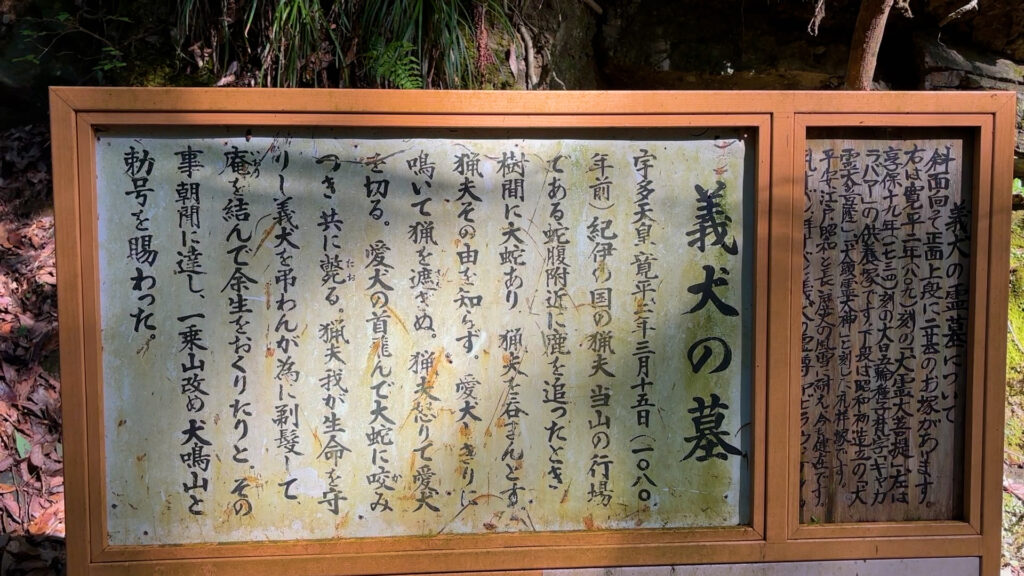 義犬の墓
宇多天皇 寛平二年三月十五日(一一〇八〇
年前) 紀伊の国の猟夫 当山の行場
である蛇腹附近に鹿を追ったとき
樹間に大蛇あり 猟夫を呑まんとす
猟夫その由を知らず 愛犬しきりに
鳴いて猟を遮ぎぬ。猟夫怒りて愛犬
を切る。愛犬の首飛んで大蛇に咬み
つき 共に斃る。猟夫我が生命を守
りし義犬を弔わんが為に剃髪して
庵を結んで余生をおくりたりと。その
事 朝聞に達し、一乗山改め犬鳴山と
勅号を賜わった。
義犬の霊墓について
斜面向って正面上段に二基のお塚があります。
右は寛平二年(八〇九)刻の「大霊犬菩提」左は
享保十九年(一七三四)刻の大日五輪種子
ラバア」の供養塚です。下段は昭和初造立の「犬